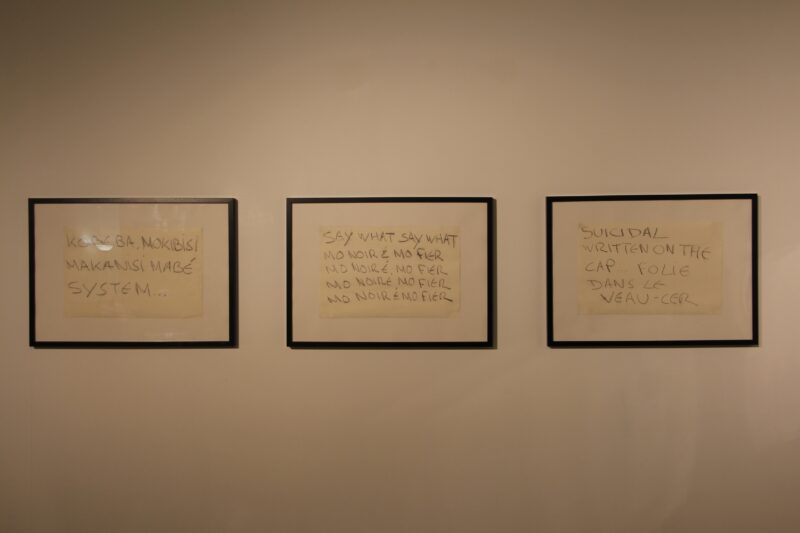 MOKIBISI
MAKANISI MABÉ
SYSTEM...
SAY WHAT SAY WHAT
MO NOIR É MO FIER
MO NOIR É, MO FIER
MO NOIR É, MO FIER
MO NOIR É MO FIER
SUICIDAL
WRITTEN ON THE
CAP... FOLIE
DANS LE
VEAU-CER